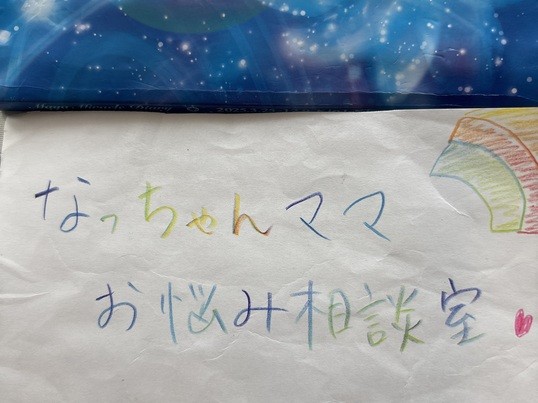 なっちゃんママ
お悩み相談室